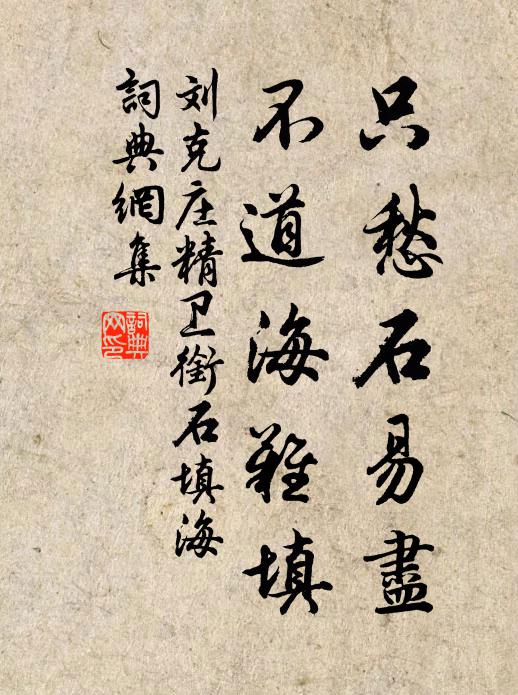 只愁石易盡
不道海難填
刘克庄精卫銜石填海
詞典網集
詞典網印